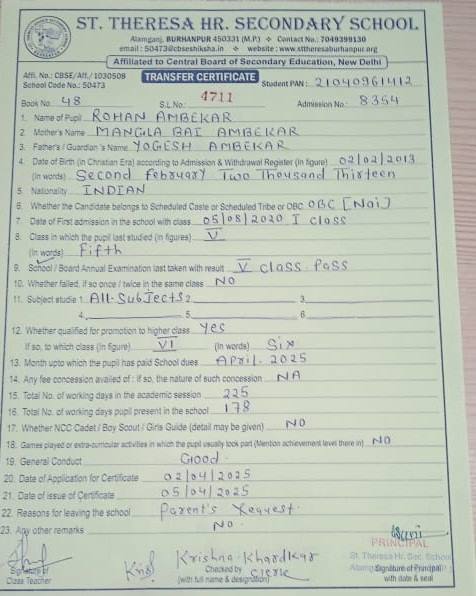 ST. THERESA HR. SECONDARY SCHOOL
Alamganj, BURHANPUR 450331 (M.P.) ❖ Contact No.: 7049399130
email : 50473@cbseshiksha.in ❖ website : www.sttheresaburhanpur.org
Affiliated to Central Board of Secondary Education, New Delhi
Affi. No.: CBSE/Aff./1030508
School Code No.: 50473
TRANSFER CERTIFICATE
Student PAN : 21040961412
Book No. 48 S.L No. 4711 Admission No.: 8354
1. Name of Pupil ROHAN AMBEKAR
2. Mother's Name MANGLA BAI AMBEKAR
3. Father's / Guardian 's Name YOGESH AMBEKAR
4. Date of Birth (in Christian Era) according to Admission & Withdrawal Register (in figure) 02/02/2013
(in words) Second February Two Thousand Thirteen
5. Nationality INDIAN
6. Whether the Candidate belongs to Scheduled Caste or Scheduled Tribe or OBC OBC [Nai]
7. Date of First admission in the school with class 05/08/2020 I class
8. Class in which the pupil last studied (in figures) V
(in words) Fifth
9. School / Board Annual Examination last taken with result V class Pass
10. Whether failed, if so once / twice in the same class NO
11. Subject studie 1. All-Subjects 2. 3.
4. 5. 6.
12. Whether qualified for promotion to higher class Yes
If so, to which class (in figure) VI (in words) Six
13. Month upto which the pupil has paid School dues April. 2025
14. Any fee concession availed of : if so, the nature of such concession NA
15. Total No. of working days in the academic session 225
16. Total No. of working days pupil present in the school 178
17. Whether NCC Cadet / Boy Scout / Girls Guide (detail may be given) NO
18. Games played or extra-curricular activities in which the pupil usually took part (Mention achievement level there in) NO
19. General Conduct Good
20. Date of Application for Certificate 02/04/2025
21. Date of issue of Certificate 05/04/2025
22. Reasons for leaving the school Parent's Request.
23. Any other remarks NO.
PRINCIPAL
St. Theresa Hr. Sec. School
Signature of
Class Teacher
Krishna Khardkar
Checked by Clerk
(with full name & designation)
Signature of Principal
with date & seal